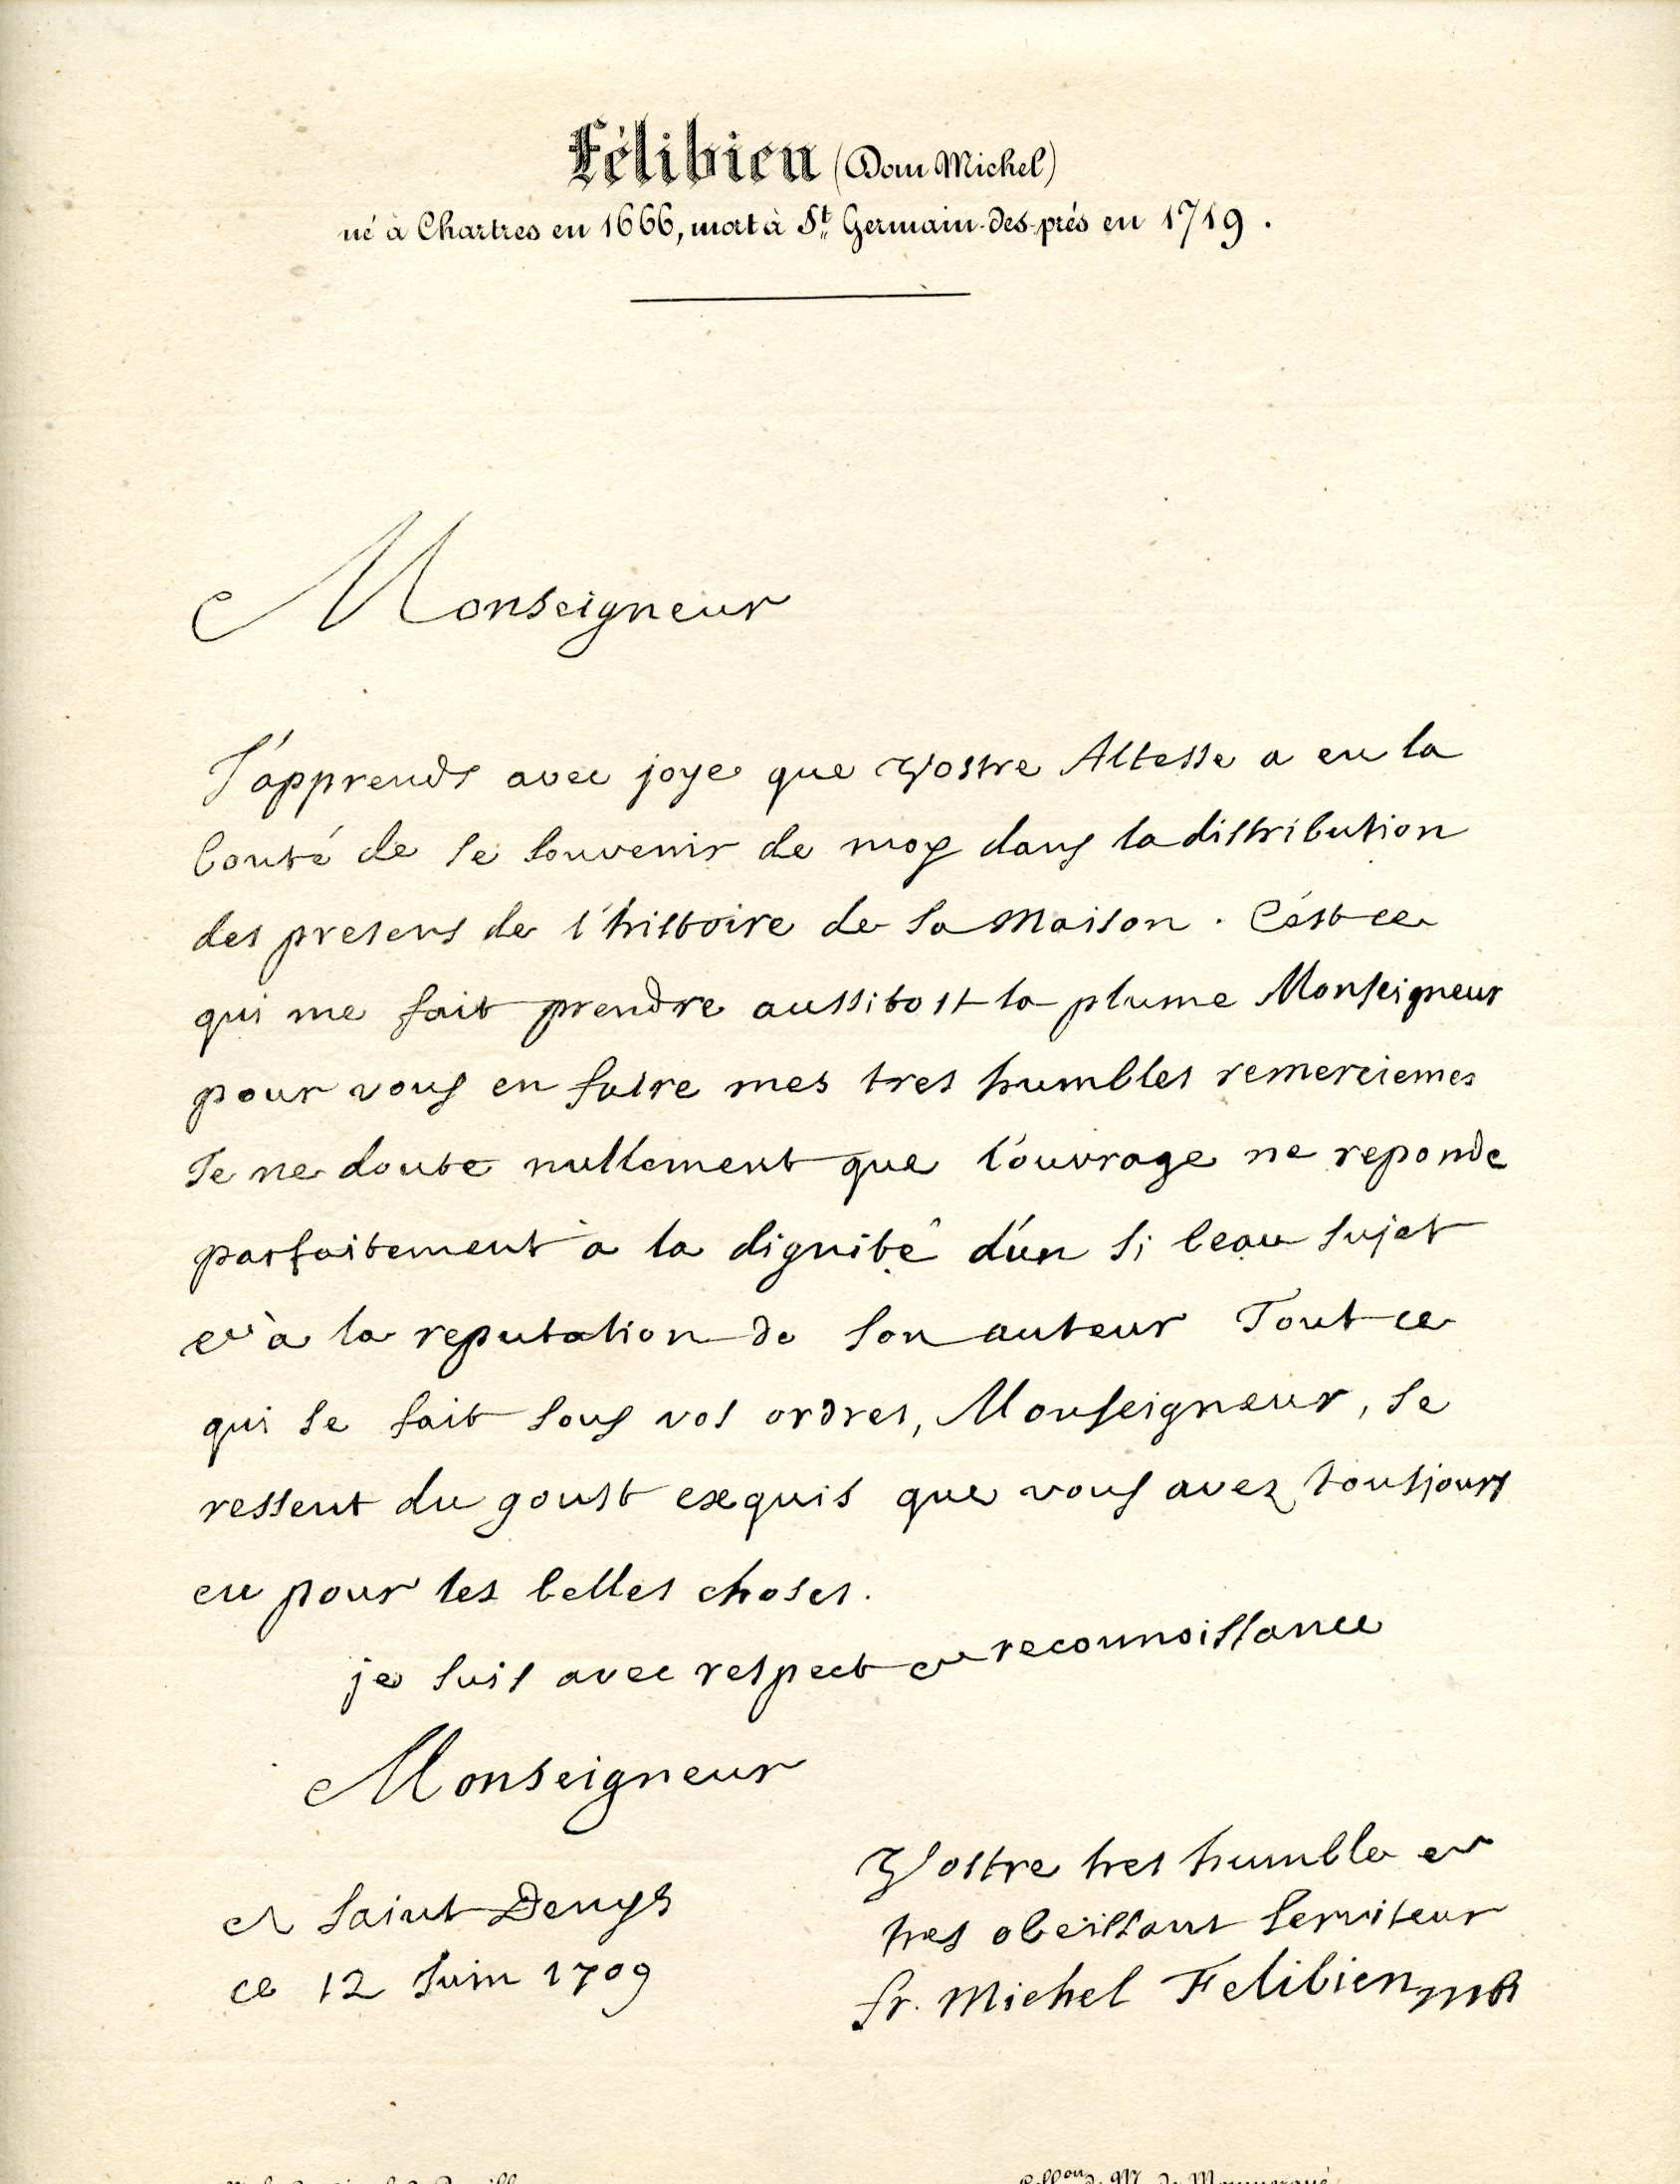 Félibien (Dom Michel)
né à Chartres en 1666, mort à St. Germain-des-prés en 1719.
Monseigneur
J'apprends avec joye que Vostre Altesse a eu la
bonté de se souvenir de moy dans la distribution
des presens de l'histoire de sa Maison. C'est ce
qui me fait prendre aussitost la plume Monseigneur
pour vous en faire mes tres humbles remerciemes
Je ne doute nullement que l'ouvrage ne reponde
parfaitement a la dignité d'un si beau sujet
et a la reputation de son auteur Tout ce
qui se fait sous vos ordres, Monseigneur, se
ressent du goust exquis que vous avez tousjours
eu pour les belles choses.
je suis avec respect et reconnoissance
Monseigneur
Vostre tres humble et
tres obeissant serviteur
fr. Michel Felibien MB
A Saint Denys
ce 12 Juin 1709
Collon de Mr. de Monmerqué